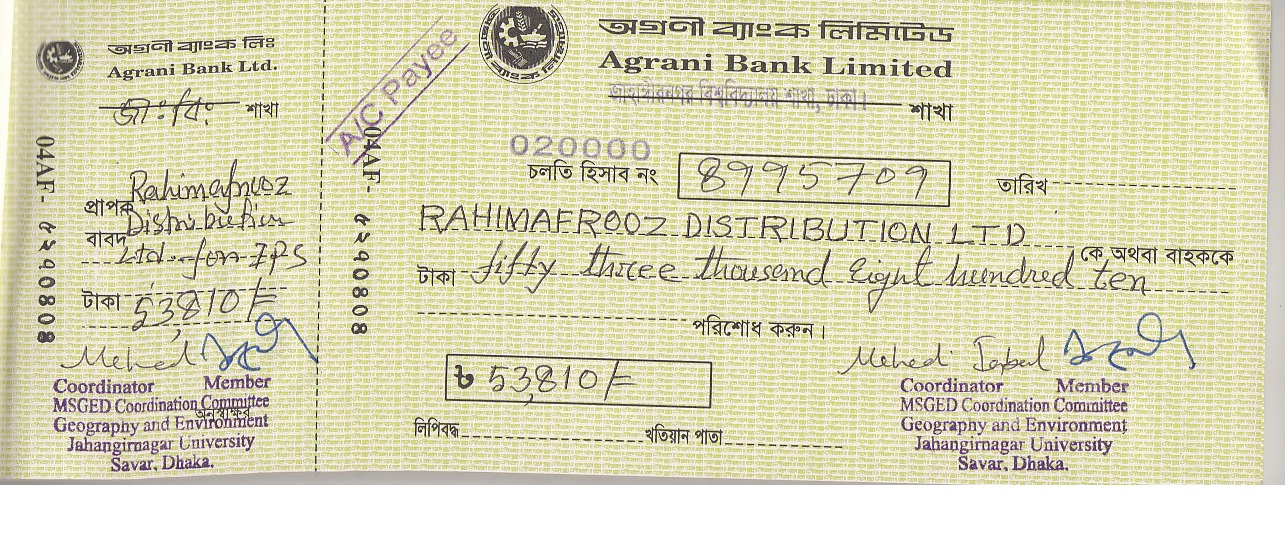 অগ্রণী ব্যাংক লিঃ
Agrani Bank Ltd.
জাঃবিঃ শাখা
04AF- ৫২৭০৪০৪
প্রাপক Rahimafrooz
বাবদ Distribution
Ltd. for IPS
টাকা 53,810/=
Mehedi
Coordinator Member
MSGED Coordination Committee
অনুস্বাক্ষর
Geography and Environment
Jahangirnagar University
Savar, Dhaka.
A/C Payee
04AF- ৫২৭০৪০৪
অগ্রণী ব্যাংক লিমিটেড
Agrani Bank Limited
জাহাঙ্গীরনগর বিশ্ববিদ্যালয় শাখা, ঢাকা। শাখা
020000
চলতি হিসাব নং 8995709 তারিখ
RAHIMAFROOZ DISTRIBUTION LTD কে অথবা বাহককে
টাকা fifty three thousand Eight hundred ten
পরিশোধ করুন।
৳ 53,810/=
Mehedi Iqbal
Coordinator Member
MSGED Coordination Committee
Geography and Environment
Jahangirnagar University
Savar, Dhaka.
লিপিবদ্ধ খতিয়ান পাতা